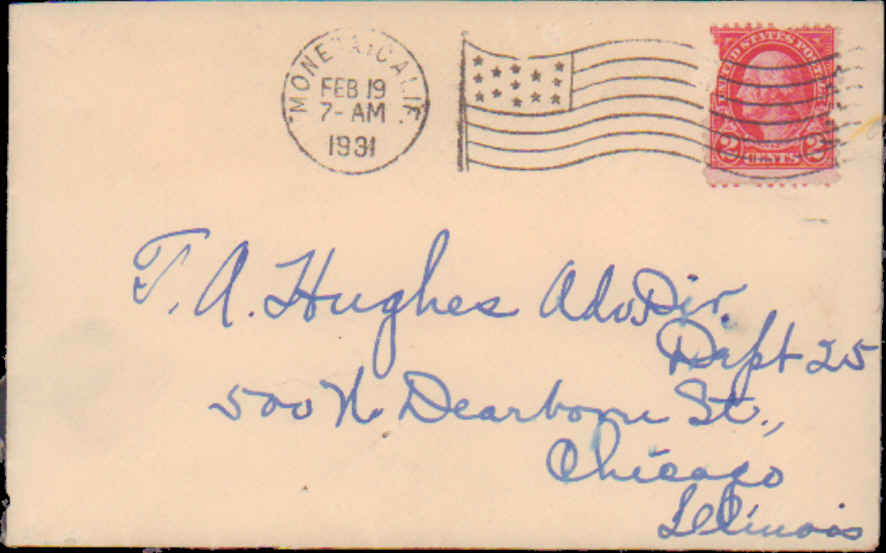 MONETA, CALIF.
FEB 19
7-AM
1931
UNITED STATES POST
2 CENTS 2
T. A. Hughes Adv. Dir.
Dept 25
500 N. Dearborn St.,
Chicago
Illinois